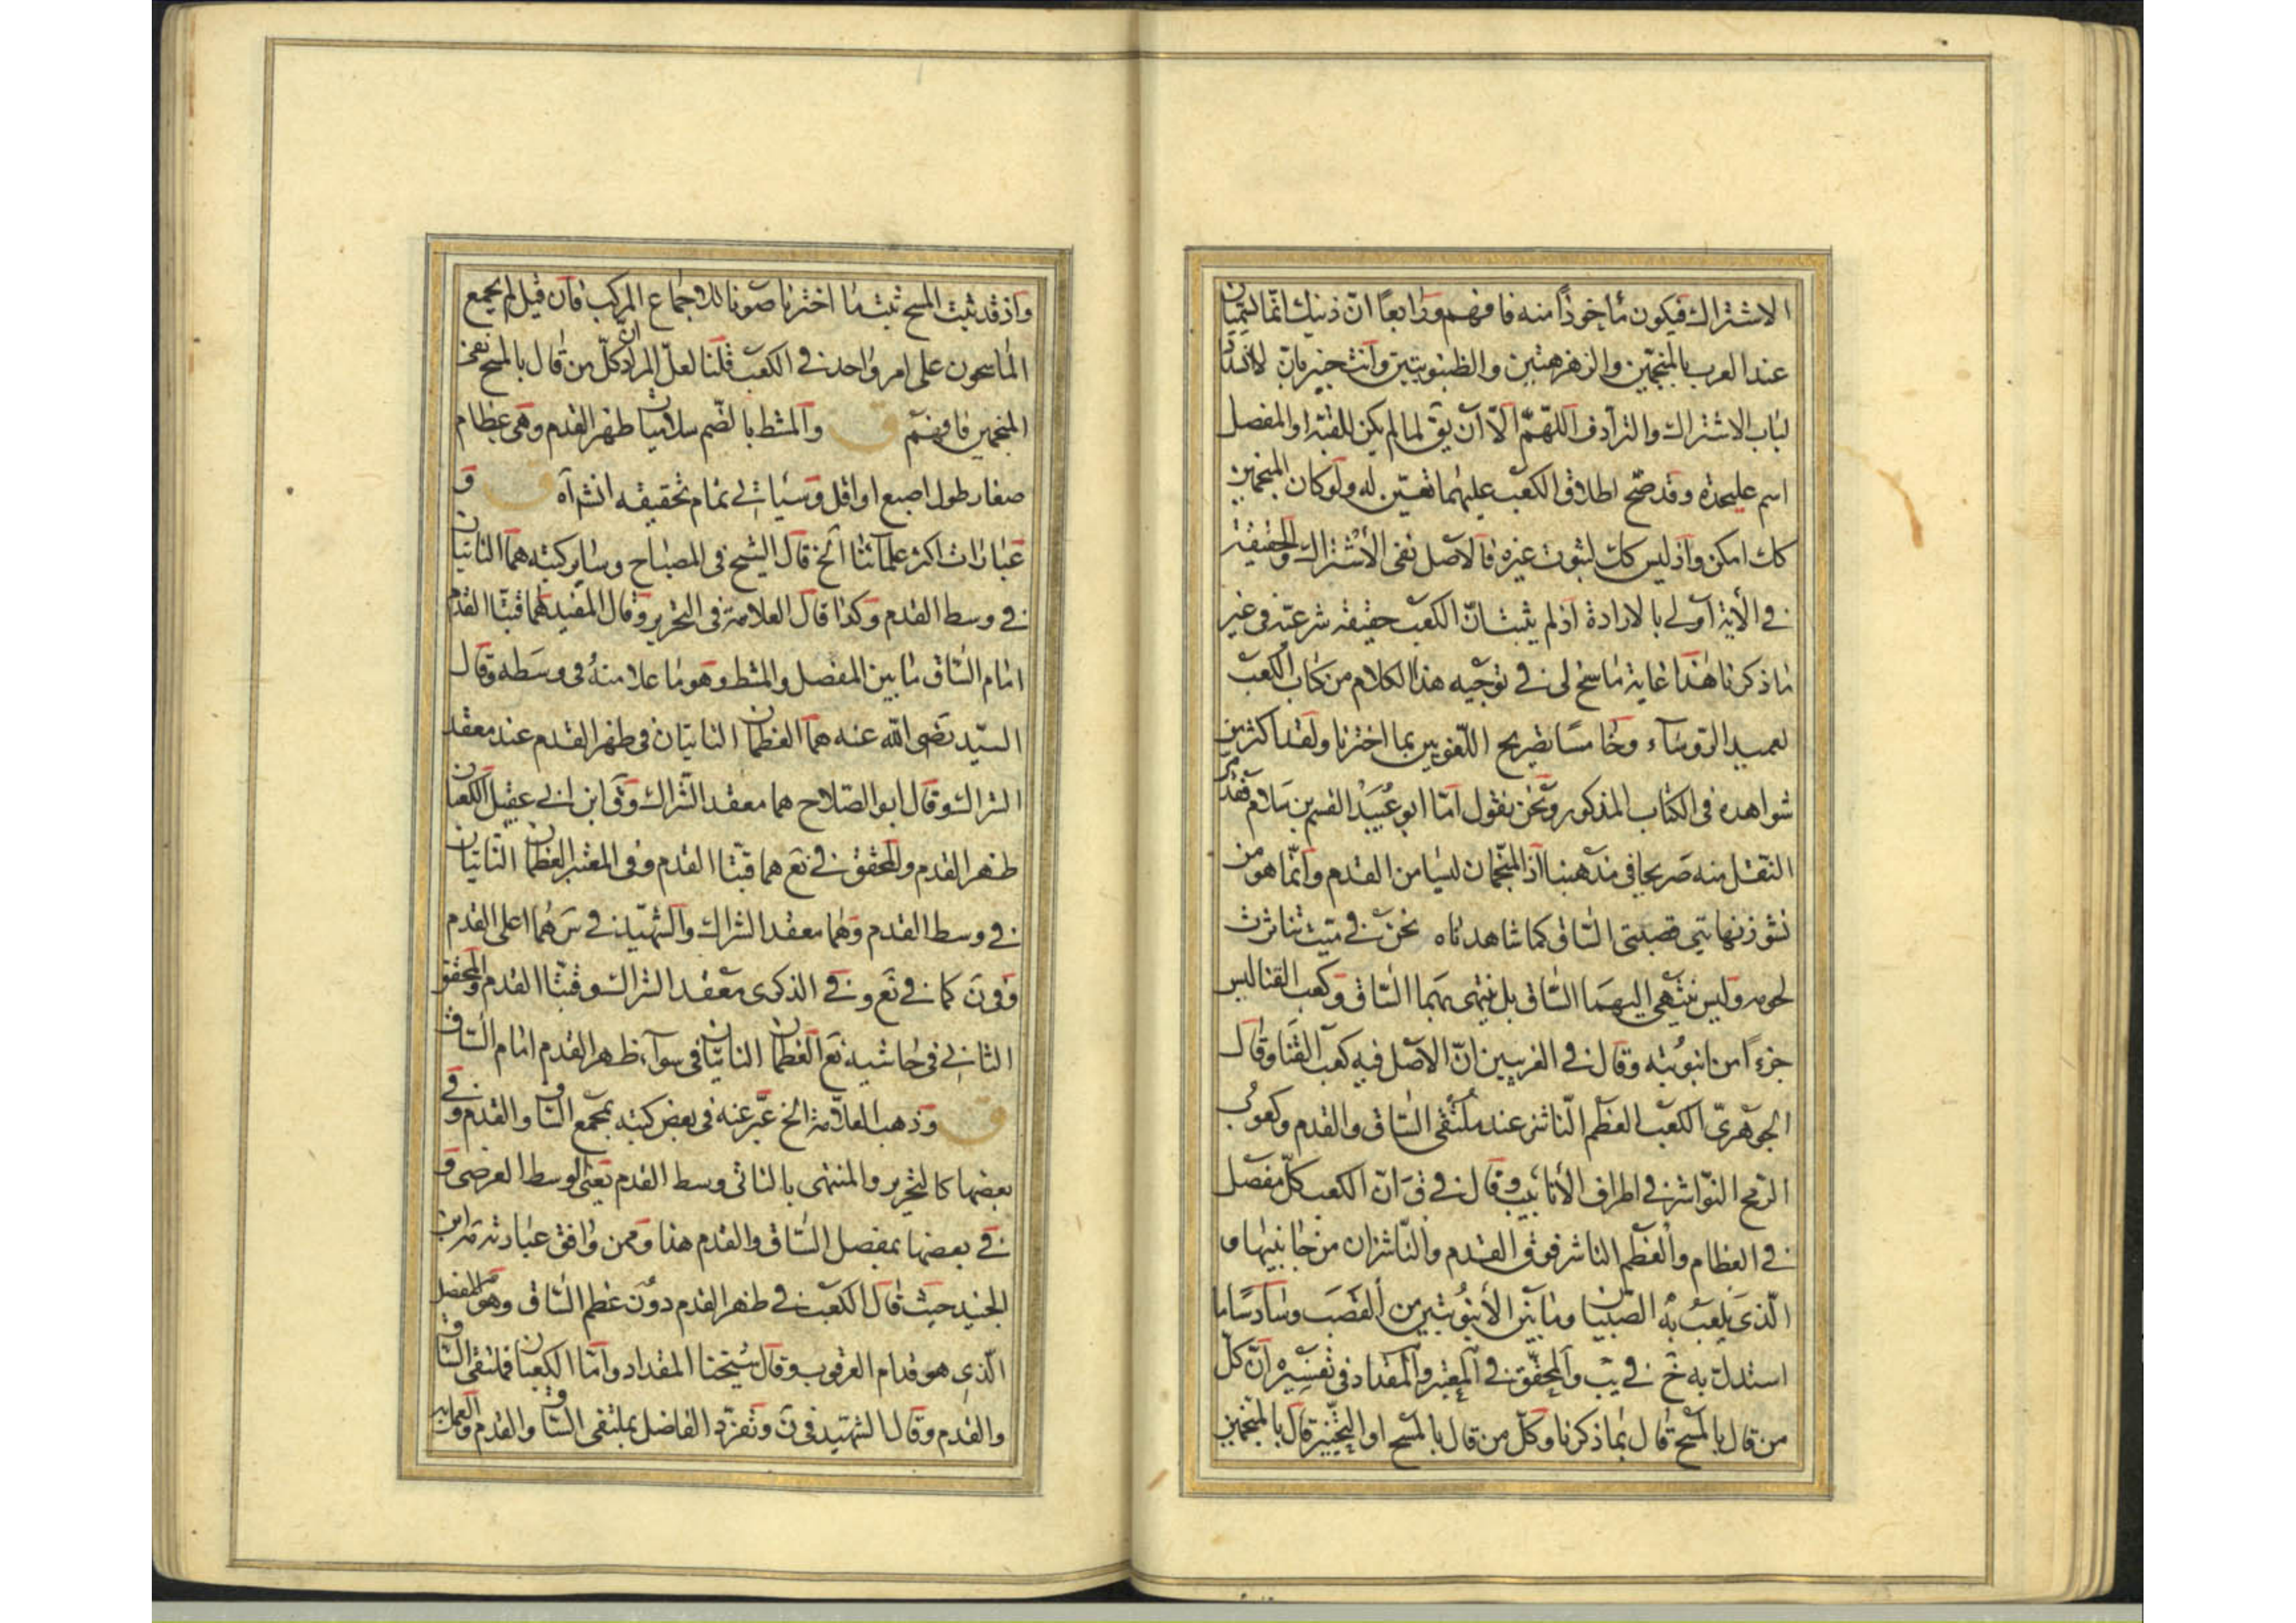 الاشتراك فيكون مأخوذاً منه فافهم ورابعاً انّ ذينك انّما يسمّيان
عند العرب بالمنجمين والزهرهتين والظنبوبتين وانت خبير بانّ لا انسداد
لباب الاشتراك والترادف اللّهمّ الّا ان يق لما لم يكن للقبّة او المفصل
اسم عليحدة وقد صحّ اطلاق الكعب عليهما تعيّن له ولو كان المنجمين
كك امكن واذ ليس كك لثبوت غيره فالاصل نفى الاشتراك والحقيقة
في الآية اولى بالارادة اذ لم يثبت انّ الكعب حقيقة شرعيّة فى غير
ما ذكرنا هذا غاية ما سنح لى في توجيه هذا الكلام من كتاب الكعب
لعميد الرؤساء وخامساً تصريح اللّغويين بما اخترنا ولقد اكثر من
شواهده فى الكتاب المذكور ونحن نقول امّا ابو عُبَيْد القسم بن سلام فقد مرّ
النقل منه صريحا فى مذهبنا اذ المنجمان ليسا من القدم وانّما هو من
نشوز نهايتي قصبتى السّاق كما شاهدناه نحن في ميت تناثرت
لحومه وليس ينتهي اليهما السّاق بل ينتهى بهما السّاق وكعب القنا ليس
جزءاً من انبوبته وقال في الغريبين انّ الاصل فيه كعب القنا وقال
الجوهريّ الكعب العظم النّاشز عند ملتقى السّاق والقدم وكعوب
الرّمح النّواشز في اطراف الأنابيب وقال في ق انّ الكعب كلّ مفصل
في العظام والعظم الناشز فوق القدم والنّاشزان من جانبيها و
الّذى يلعب به الصّبيان وما بين الأنبوبتين من القصب وسادساً ما
استدلّ به خ في يب والمحقّق في المعتبر والمقداد فى تفسيره انّ كلّ
من قال بالمسح قال بما ذكرنا وكلّ من قال بالمسح او التّخيير قال بالمنجمين
واذ قد ثبت المسح ثبت ما اخترنا صونا للاجماع المركب فان قيل لم يجمع
الماسحون على امر واحد في الكعب قلنا لعلّ المراد انّ كلّ من قال بالمسح نفى
المنجمين فافهم ق والمشط بالضّم سلاميات ظهر القدم وهى عظام
صغار طول اصبع او اقل وسيأتي تمام تحقيقه انش آه ق و
عبارات اكثر علمائنا الخ قال الشيخ فى المصباح وساير كتبه هما الناتيان
في وسط القدم وكذا قال العلامة فى التحرير وقال المفيد هما قبّتا القدم
امام السّاق ما بين المفصل والمشط وهو ما علا منه فى وسطه وقال
السيّد رضى الله عنه هما العظمان الناتيان فى ظهر القدم عند معقد
الشراك وقال ابو الصّلاح هما معقد الشّراك وق ابن ابي عقيل الكعبان
ظهر القدم والمحقق في يع هما قبّتا القدم وفى المعتبر العظمان النّاتيان
في وسط القدم وهما معقد الشراك والشّهيد في س هما اعلى القدم
وفى ن كما في يع وفي الذكرى معقد الشراك وقبّتا القدم والمحقق
الثاني فى حاشية يع العظمان الناتيان فى سوآء ظهر القدم امام السّاق
ق وذهب العلّامة الخ عبّر عنه فى بعض كتبه بمجمع السّاق والقدم وفي
بعضها كالتحرير والمنتهى بالناتى وسط القدم يعنى الوسط العرضى و
في بعضها بمفصل السّاق والقدم هذا وممن وافق عبارته مرّ ابن
الجنيد حيث قال الكعب في ظهر القدم دون عظم السّاق وهو المفصل
الّذي هو قدام العرقوب وقال شيخنا المقداد وامّا الكعبان فملتقى السّاق
والقدم وقال الشهيد فى ن وتفرّد الفاضل بملتقى السّاق والقدم والعمل به